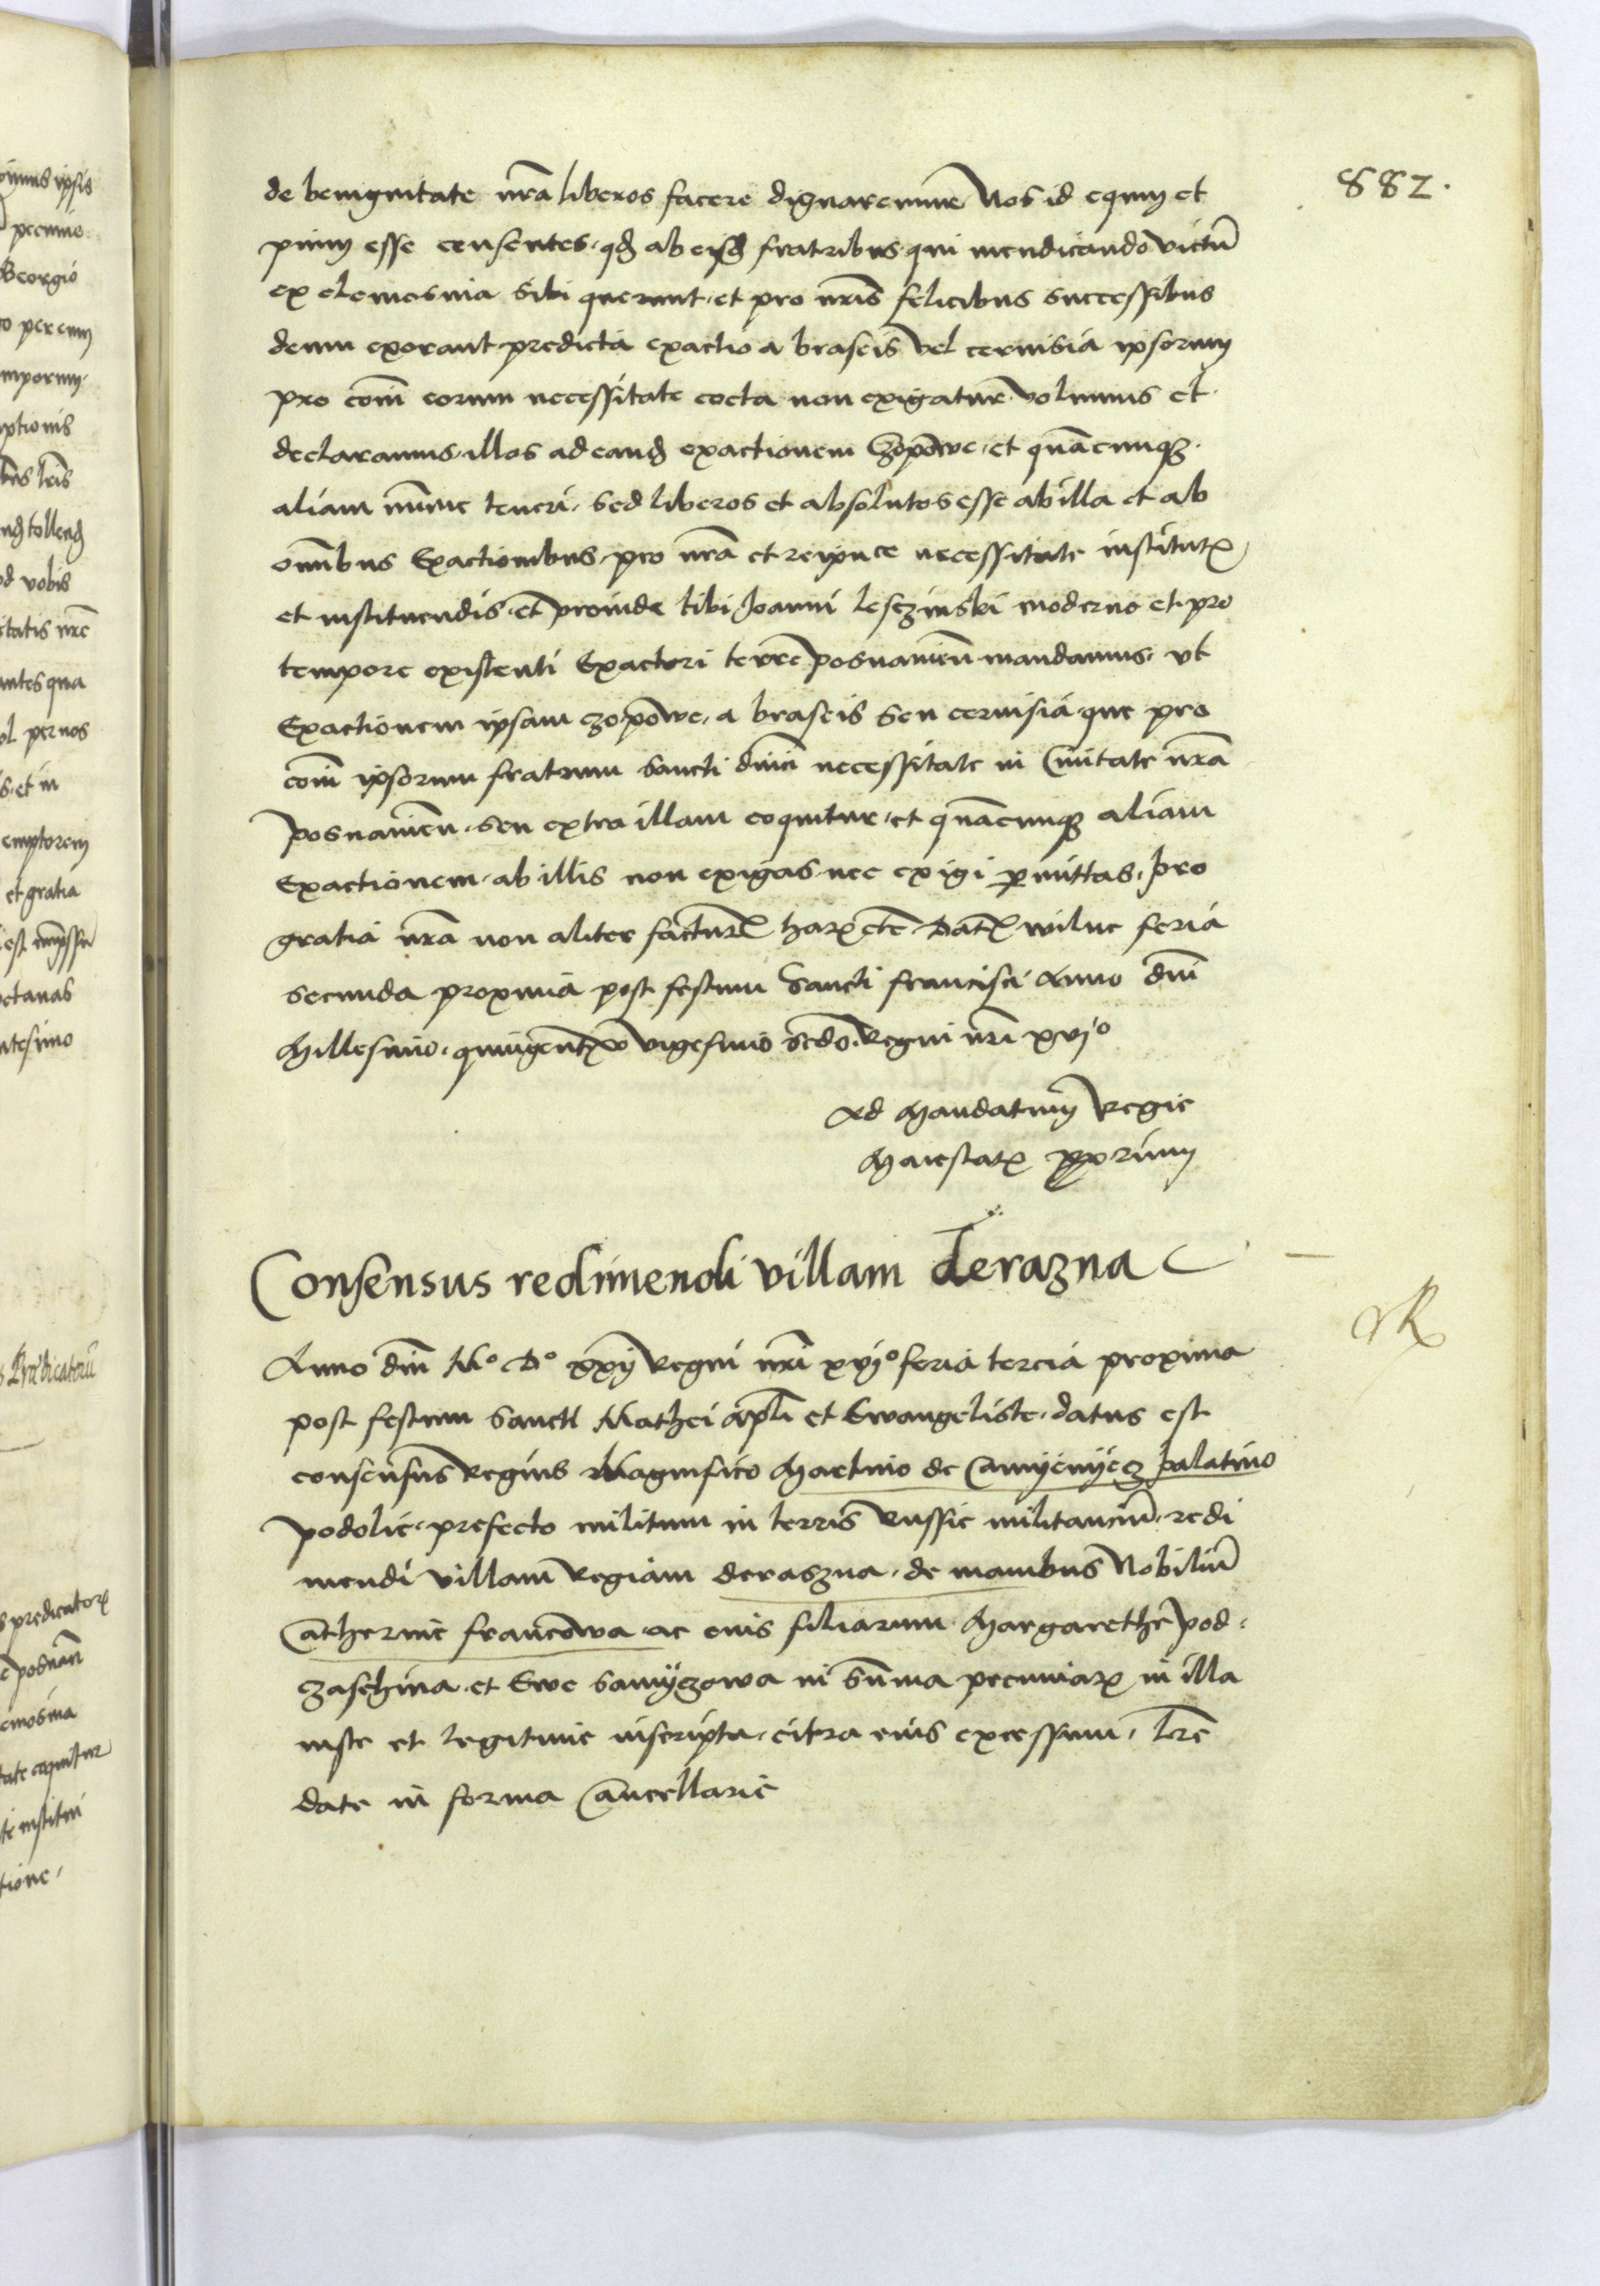 882.
de benignitate nrã liberos facere dignaremur Nos id equm et
pium esse censentes qd ab eisd fratribus qui mendicando victũ
ex elemosina sibi querunt et pro nris felicibus successibus
deum exorant predicta exactio a braseis vel cervisia ipsorum
pro com̃ eorum necessitate cocta non exigatur volumus et
declaramus illos ad eand exactionem Czopowe et quãcunq
aliam minime teneri sed liberos et absolutos esse ab illa et ab
omnibus Exactionibus pro nrã et reipuce necessitate institut
et instituendis et proinde tibi Joanni lesczinski moderno et pro
tempore existenti Exactori terre posnanien mandamus vt
Exactionem ipsam czopowe a braseis seu cervisia que pro
com̃ ipsorum fratrum sancti dnici necessitate in Civitate nrã
posnanien seu extra illam coquitur et quãcunq aliam
Exactionem ab illis non exigas nec exigi permittas pro
gratia nrã non aliter factur har etc Dat wilne feria
secunda proxima post festum Sancti francisci Anno dni
Millesimo quingent vigesimo scdo Regni nri xvjº
Ad Mandatum Regie
Maiestat pprium
Consensus redimendi villam derazna
Anno dni Mº Dº xxij Regni nri xvjº feria tercia proxima
post festum sancti Mathei apli et Ewangeliste datus est
consensus Regius Magnifico Martino de Camyenyecz palatino
podolie prefecto militum in terris Russie militanciũ redi
mendi villam Regiam deraszna de manibus Nobiliũ
Catherine francowa ac eius filiarum Margarethe pod
zaschina et Ewe samyczowa in sũma pecuniar in illa
iuste et legitime inscripta citra eius excessum lre
date in forma Cancellarie